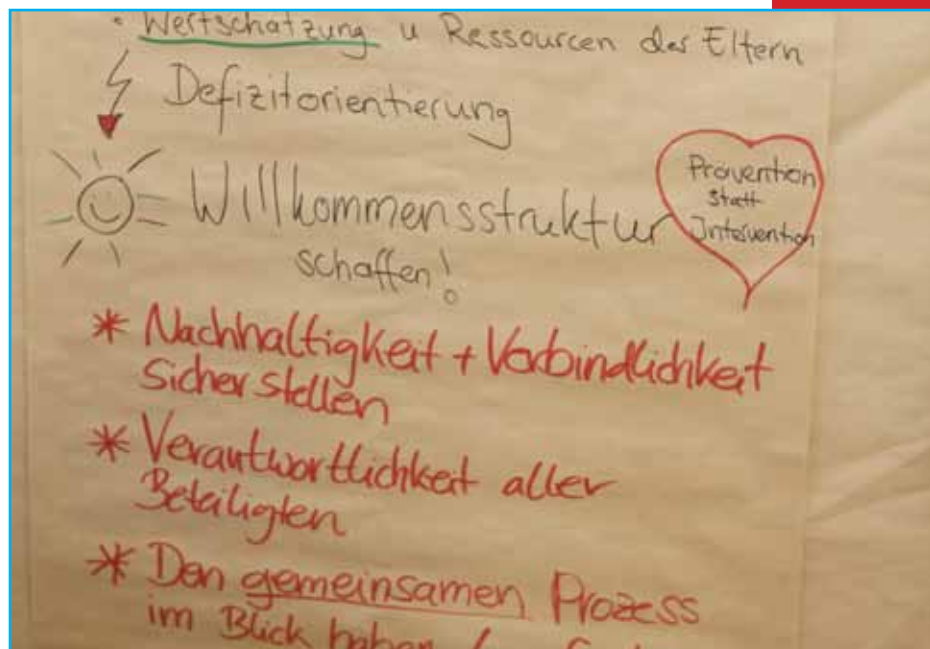 • Wertschätzung u Ressourcen der Eltern
Defizitorientierung
Willkommensstruktur
schaffen!
Prävention
statt
Intervention
* Nachhaltigkeit + Verbindlichkeit
sicher stellen
* Verantwortlichkeit aller
Beteiligten
* Den gemeinsamen Prozess
im Blick haben